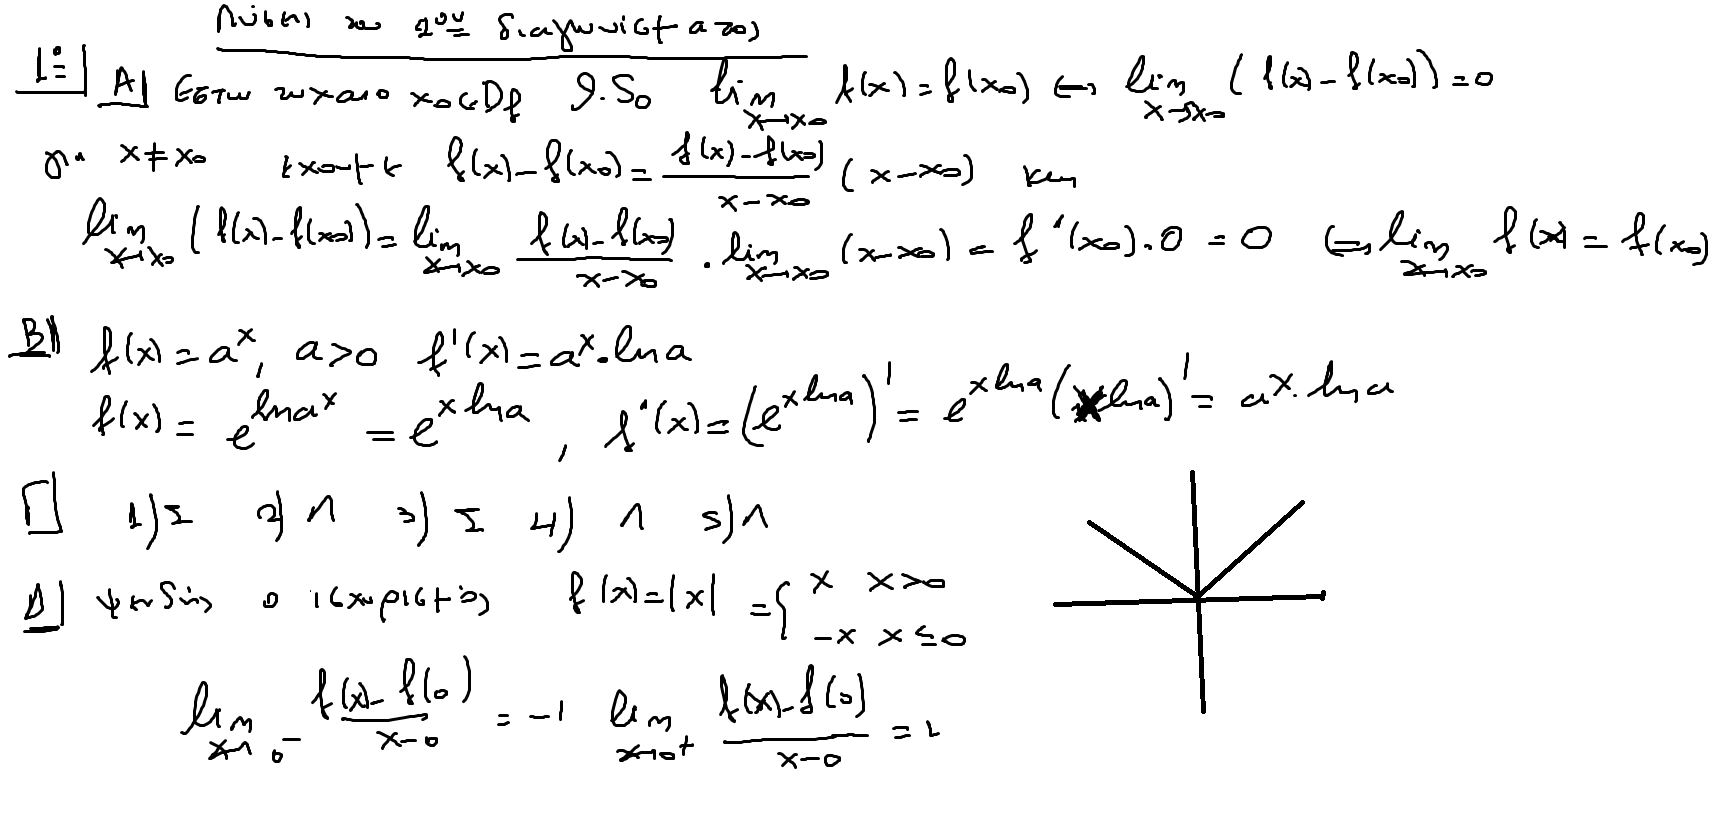 Λύσεις του 2ου διαγωνίσματος
1ο Α) Εστω τυχαιο x₀∈Df θ.δ.ο lim_{x→x₀} f(x) = f(x₀) ⟺ lim_{x→x₀} (f(x) - f(x₀)) = 0
για x ≠ x₀ εχουμε f(x) - f(x₀) = \frac{f(x) - f(x₀)}{x - x₀} (x - x₀) και
lim_{x→x₀} (f(x) - f(x₀)) = lim_{x→x₀} \frac{f(x) - f(x₀)}{x - x₀} · lim_{x→x₀} (x - x₀) = f'(x₀) · 0 = 0 ⟺ lim_{x→x₀} f(x) = f(x₀)
Β) f(x) = a^x, a>0 f'(x) = a^x · ln a
f(x) = e^{ln a^x} = e^{x ln a}, f'(x) = (e^{x ln a})' = e^{x ln a} (x ln a)' = a^x · ln a
Γ 1) Σ 2) Λ 3) Σ 4) Λ 5) Λ
Δ) ψευδής ο ισχυρισμός f(x) = |x| = { x x>0
-x x≤0
lim_{x→0⁻} \frac{f(x) - f(0)}{x - 0} = -1 lim_{x→0⁺} \frac{f(x) - f(0)}{x - 0} = 1